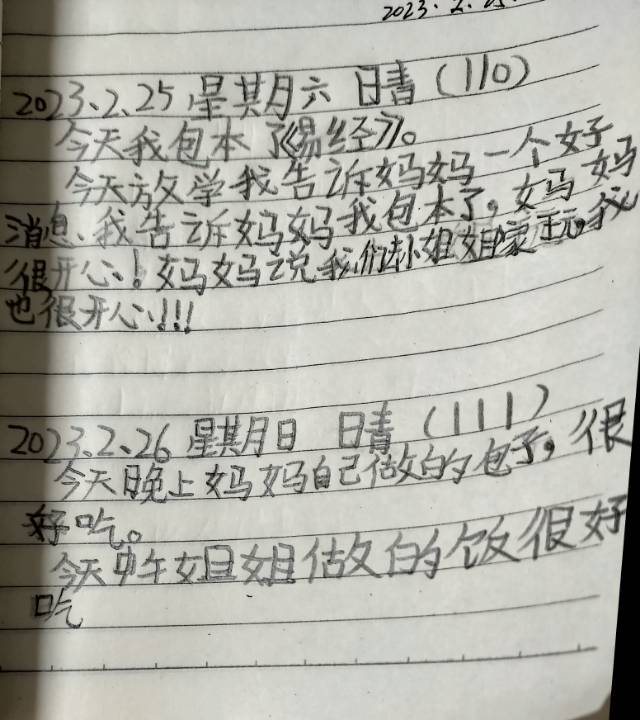 2023.2.25
2023.2.25 星其月六 日青（110）
今天我包本《易经》。
今天放学我告诉妈妈一个好
消息、我告诉妈妈我包本了，妈妈
很开心！妈妈说我们去小姐姐家玩，我
也很开心！!!!
2023.2.26 星期日 晴（111）
今天晚上妈妈自己做的包子，很
好吃。
今天中午姐姐做的饭很好
吃